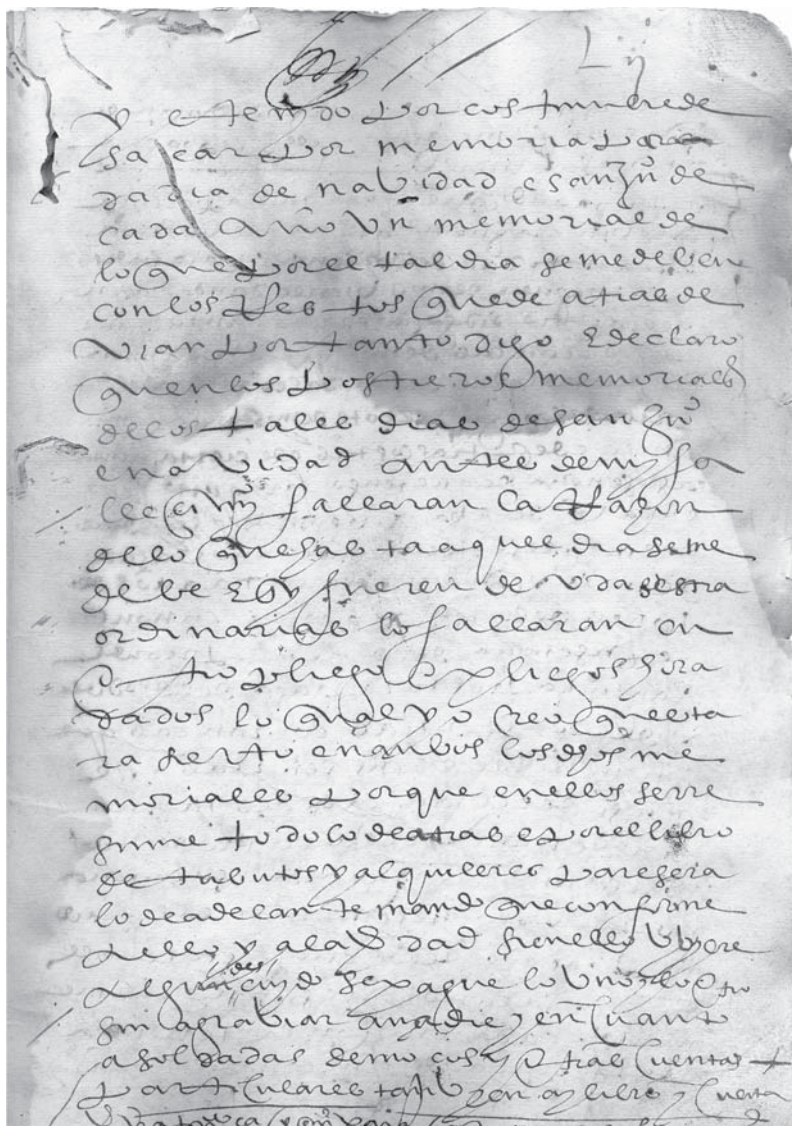 y e tenido por costumbre de
sacar por memoria para
da dia de navidad e san juº de
cada año un memorial de
lo que por el tal dia se me deben
con los restos que de atras de
vian por tanto digo e declaro
quen los postreros memoriales
de los tales dias de san juº
e navidad antes de my fa
lleçimyº fallaran la rrazon
dello que fasta aquel dia se me
debe e sy fueren deudas estra
ordinarias lo fallaran en
otro pliego o pliegos hora
dados lo qual yo creo questa
ra sierto en anbos los dhos me
moriales porque en ellos se rre
sume todo lo de atras e por el libro
de tributos y alquileres paresera
lo de adelante mando que conforme
a ello y a la verdad si en ello ubiere
algun descuydo se pague lo uno y lo otro
sin agraviar a nadie y en cuanto
a soldadas de moços y otras cuentas
particulares tanbien ay libro y cuenta